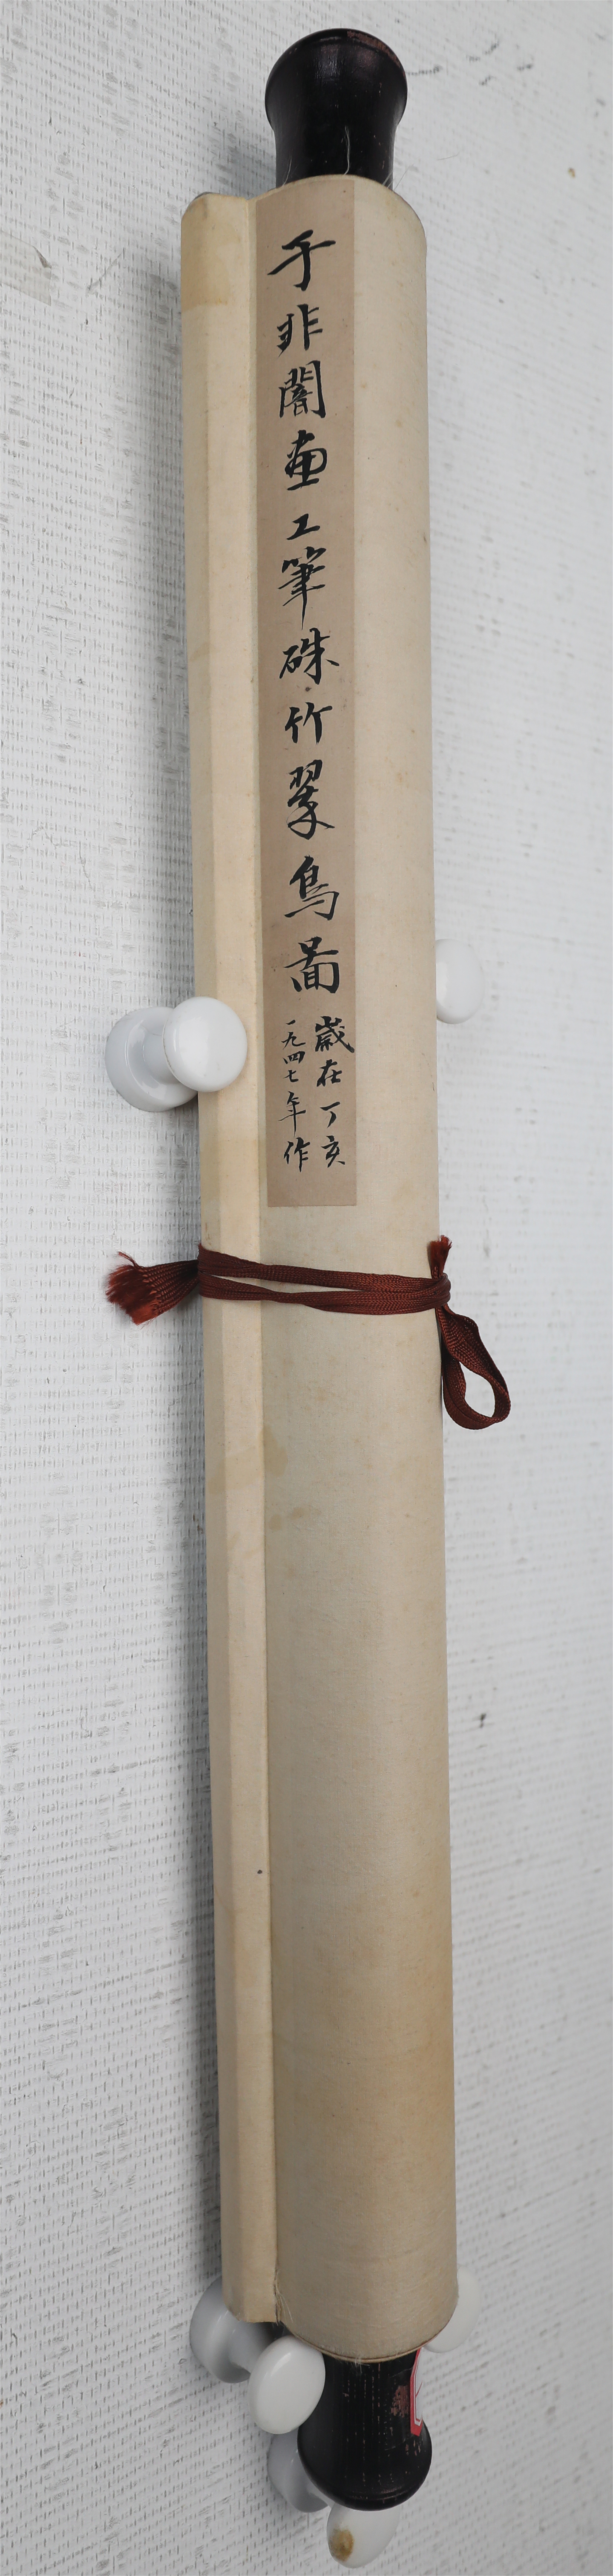 于非闇画工筆硃竹翠鳥啚
歲在丁亥
一九四七年作